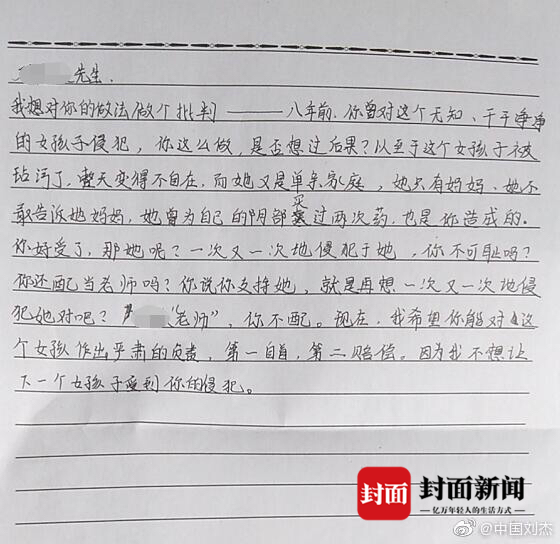 先生.
我想对你的做法做个批判——八年前,你曾对这个无知、干干净净
的女孩子侵犯,你这么做,是否想过后果?以至于这个女孩子被
玷污了,整天变得不自在,而她又是单亲家庭,她只有妈妈、她不
敢告诉她妈妈,她曾为自己的阴部买过两次药,也是你造成的.
你好受了,那她呢?一次又一次地侵犯于她,你不可耻吗?
你还配当老师吗?你说你支持她,就是再想一次又一次地侵
犯她对吧?“老师”,你不配。现在,我希望你能对这
个女孩作出严肃的负责,第一自首,第二赔偿。因为我不想让
下一个女孩子受到你的侵犯。
封面 封面新闻
亿万年轻人的生活方式
@中国刘杰